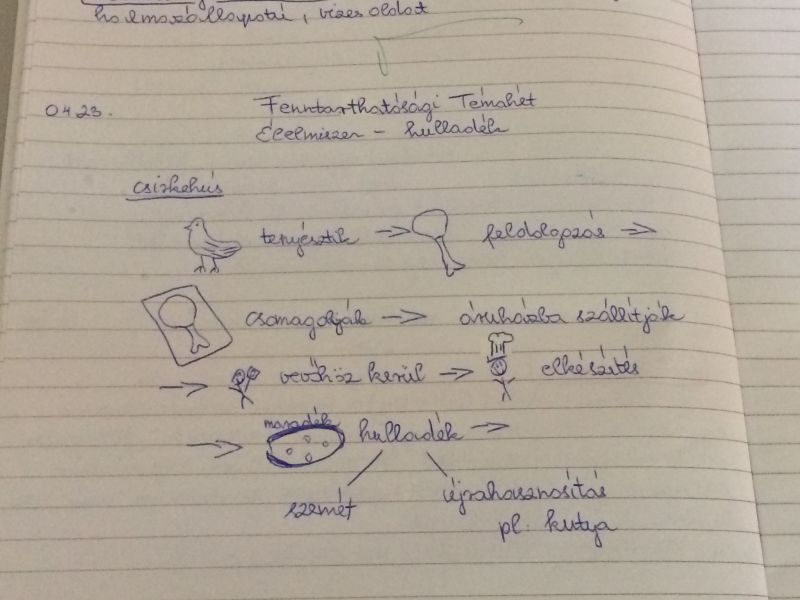 halmazállapotú, vizes oldat
04.23. Fenntarthatósági Témahét
Élelmiszer - hulladék
csirkehús
tenyésztik → feldolgozás →
csomagolják → áruházba szállítják
→ vevőhöz kerül → elkészítés
maradék
→ hulladék →
szemét újrahasznosítás
pl. kutya